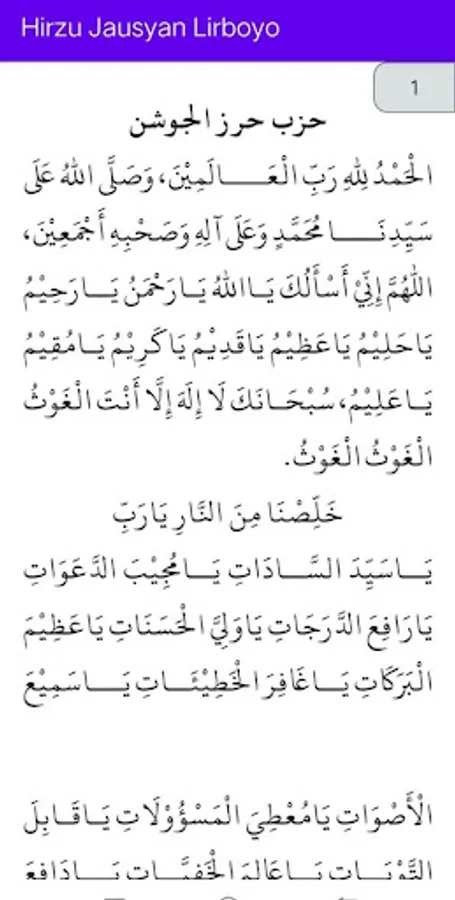 Hirzu Jausyan Lirboyo
1
حزب حرز الجوشن
الْحَمْدُ لِلهِ رَبِّ الْعَـــالَمِيْنَ، وَصَلَّى اللهُ عَلَى
سَيِّدِنَـــا مُحَمَّدٍ وَعَلَى آلِهِ وَصَحْبِهِ أَجْمَعِيْنَ،
اللّٰهُمَّ إِنِّيْ أَسْأَلُكَ يَـااللهُ يَـارَحْمَنُ يَـــارَحِيْمُ
يَاحَلِيْمُ يَاعَظِيْمُ يَاقَدِيْمُ يَاكَرِيْمُ يَـامُقِيْمُ
يَـاعَلِيْمُ، سُبْحَـانَكَ لَا إِلَهَ إِلَّا أَنْتَ الْغَوْثُ
الْغَوْثُ الْغَوْثُ.
خَلِّصْنَا مِنَ النَّارِ يَارَبِّ
يَـــاسَيِّدَ السَّـــادَاتِ يَـــامُجِيْبَ الدَّعَوَاتِ
يَارَافِعَ الدَّرَجَاتِ يَاوَلِيَّ الْحَسَنَاتِ يَاعَظِيْمَ
الْبَرَكَاتِ يَـــاغَافِرَ الْخَطِيْئَـــاتِ يَـــاسَمِيْعَ
الْأَصْوَاتِ يَامُعْطِيَ الْمَسْؤُوْلَاتِ يَـاقَـابِلَ
التَّوْبَـــاتِ يَـــاعَالِمَ الْخَفِيَّـــاتِ يَـــادَافِعَ